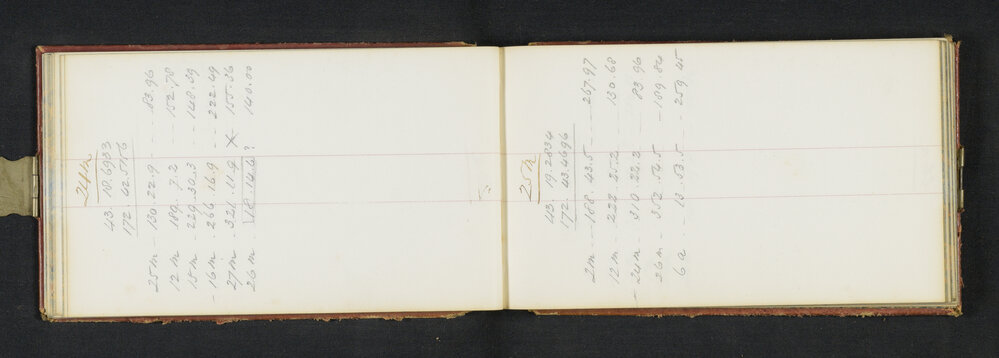 24m
43. 18.6933
172. 42.5156
25m - 130.22.9 - - - 83.96
12m 189. 7.2 - - 152.78
15m - 229.30.3 - - 148.39
- 16m . 266.16.9 - - 222.49
27m . 321.11.9 X - 155.36
26m . 18.14.6 ? 140.00
25m
43. 19.2834
172. 43.4696
2m - - - 188.43.5 - - - 267.97
12m - - 222.25.2 130.68
- 24m - 310.22.2 83.96
26m - 352.54.5 - - - 189.84
6a - - 13.53.5 - - - 259.45